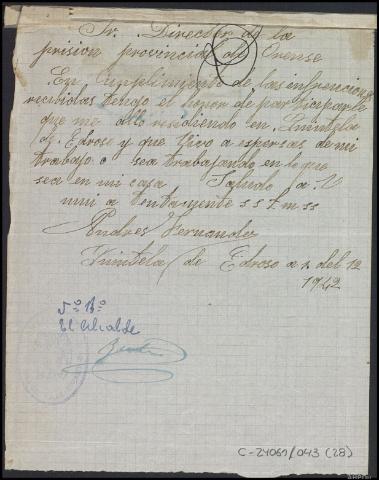 Sr. Director de la
prision provincial de Orense
En cumplimiento de las istrenciones
recibidas tengo el honor de participarle
que me allo residiendo en Quintela
de Edroso y que vivo a espensas de mi
trabajo o sea trabajando en lo que
sea en mi casa Saludo a V
mui a tentamente s s s. m ss
Andres Fernandez
Quintela de Edroso a 1 del 12
1942
Vº Bº
El Alcalde
C-24061/043 (28)